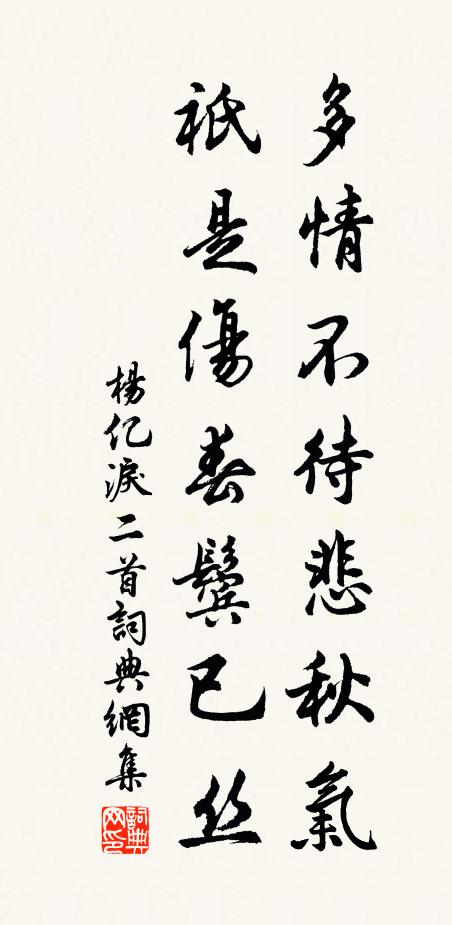 多情不待悲秋氣
祇是傷春鬢已丝
楊亿淚二首詞典網集
詞典网印